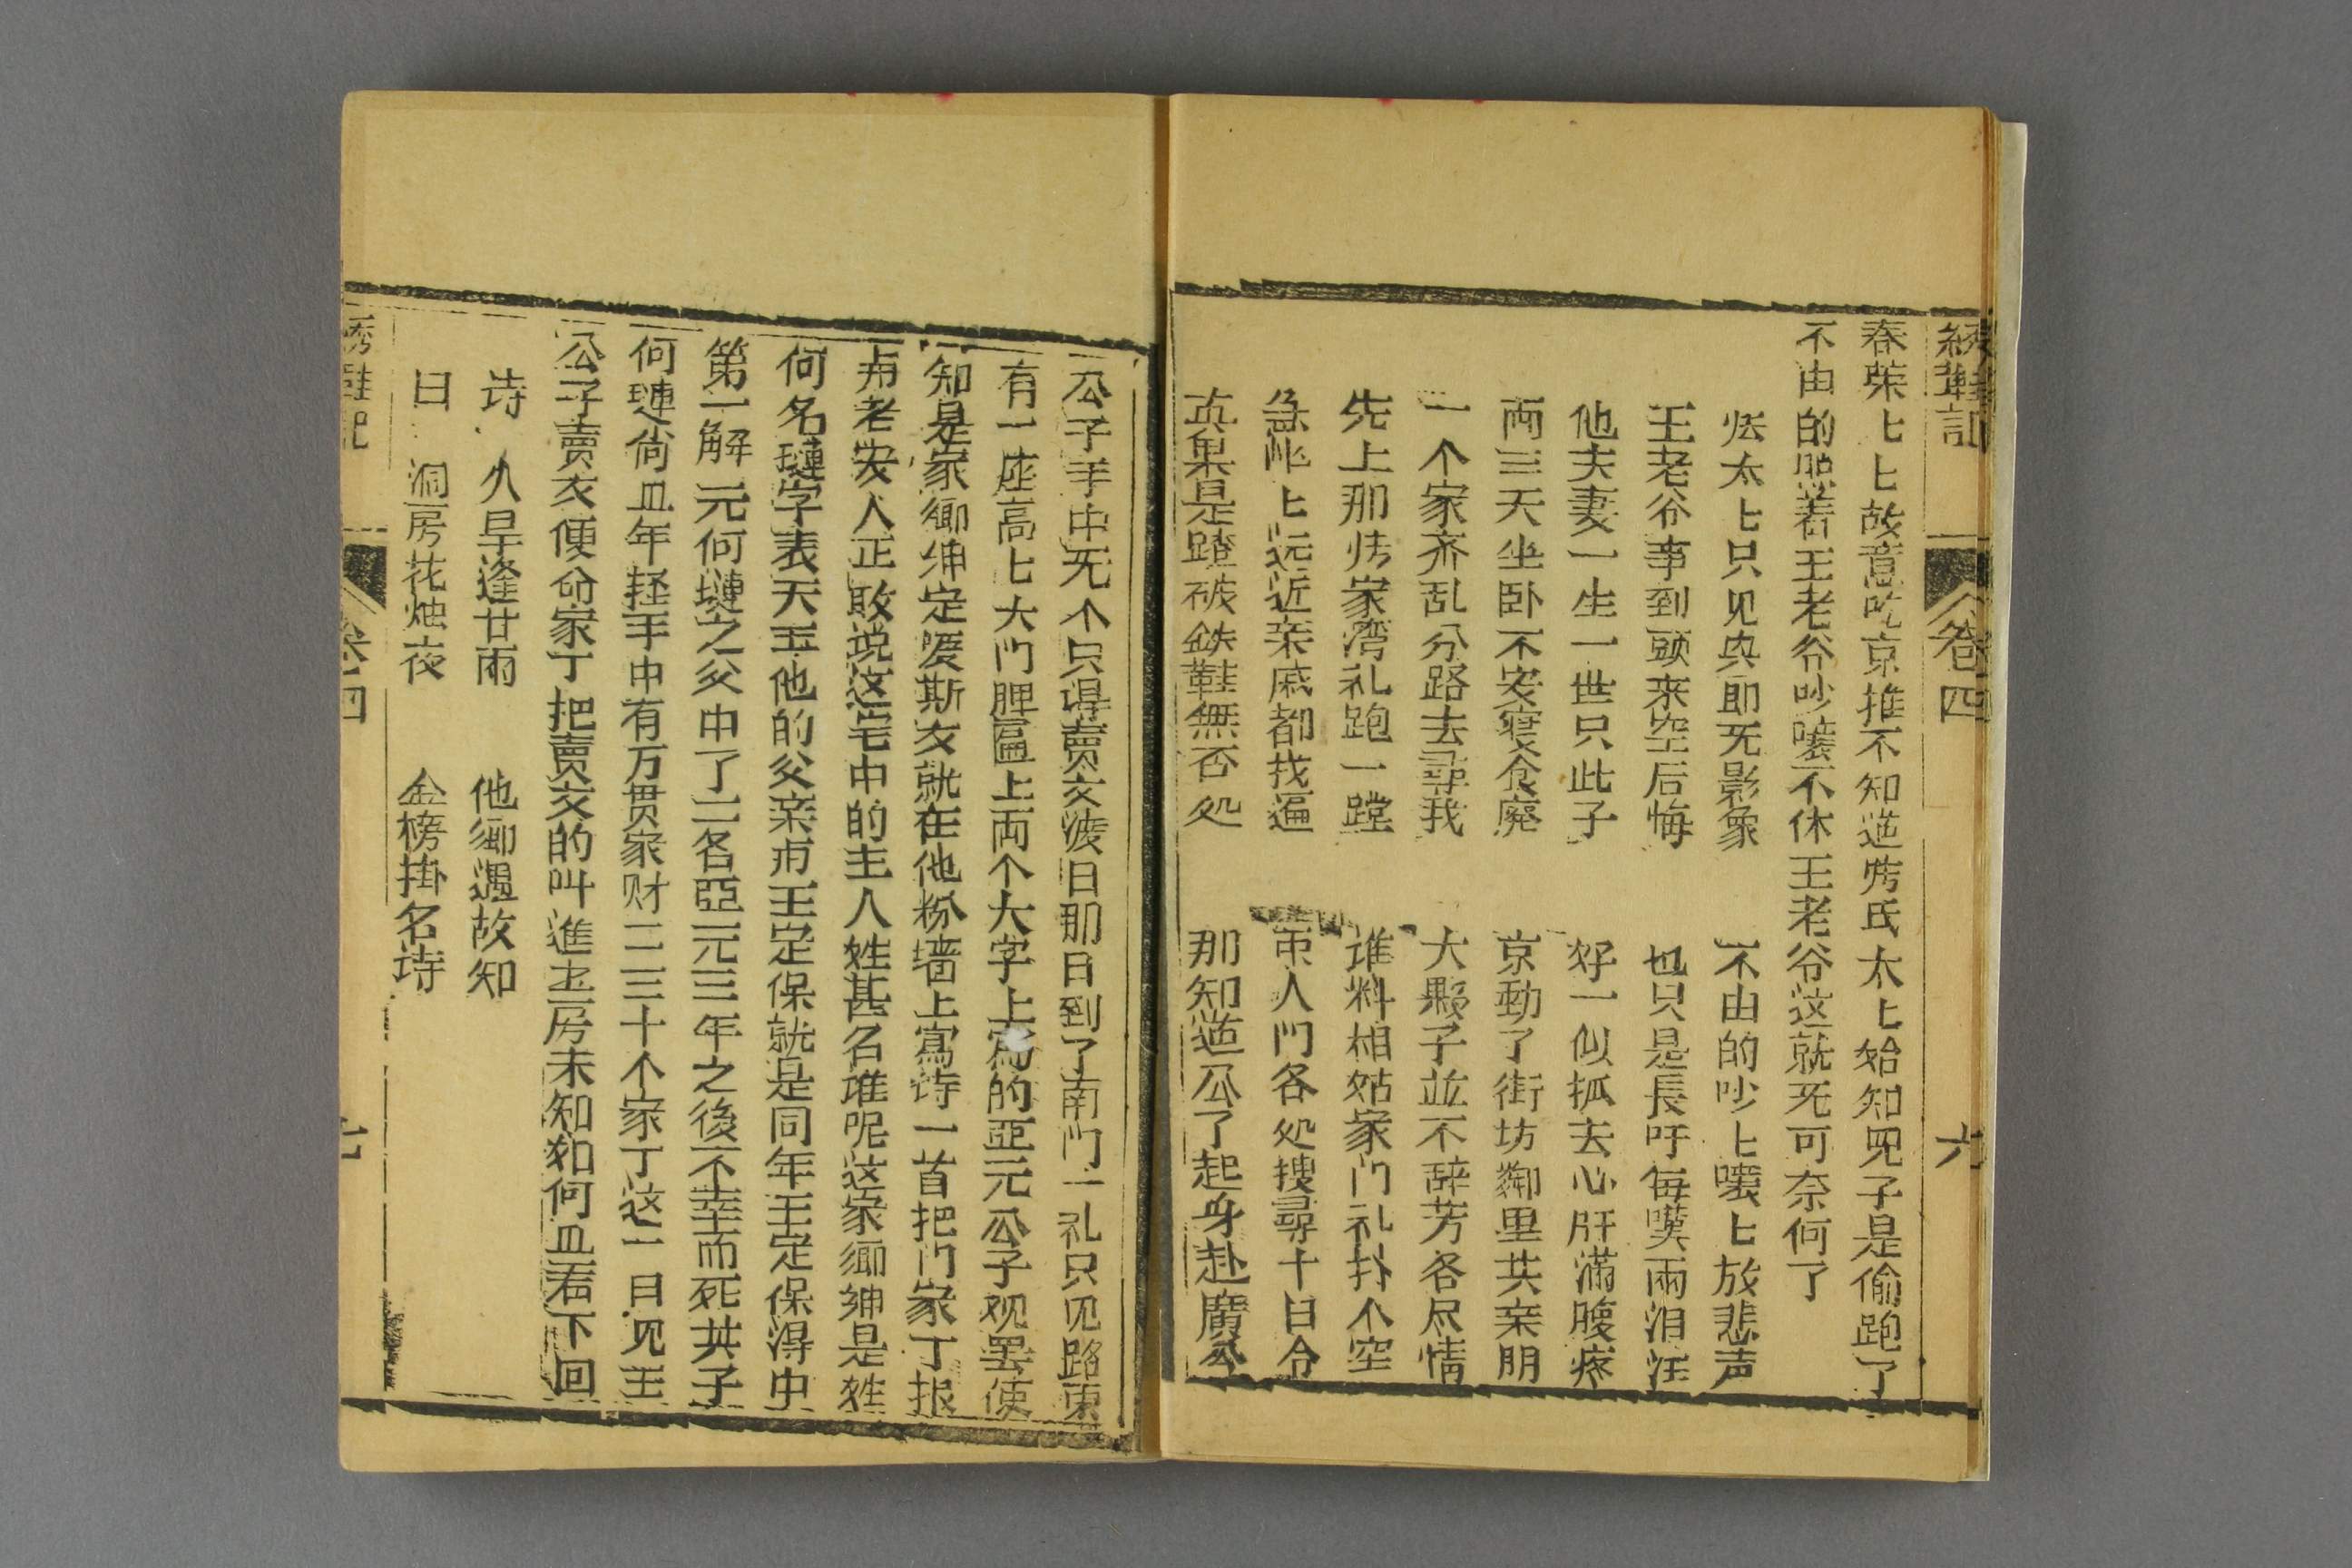 綾鞋記 卷四 六
春荣匕匕故意吃京推不知道 氏太匕始知児子是偷跑了
不由的照着王老爷吵嚷不休王老爷这就死可奈何了
太匕只见央即无影象 不由的吵匕嚷匕放悲声
王老爷事到頭来空后悔 也只是長吁每嘆兩泪汪
他夫妻一生一世只此子 好一似抓去心肝滿腹疼
両三天坐卧不安寝食廃 京動了街坊鄰里共亲朋
一个家齐乱分路去尋我 大顆子並不辞芳各尽情
先上那 家湾礼跑一蹚 谁料相姑家门礼扑个空
急忙匕远近亲戚都找遍 帀人门各処搜尋十日令
真果是蹅破鉄鞋無否処 那知道公了起身赴廣
公子手中无个只得賣文渡日那日到了南门一礼只见路東
有一座高匕大门脾匾上両个大字上寫的亞元公子观罢便
知是家鄉绅定爱斯文就在他粉墙上寫诗一首把门家丁报
老安人正敢说这宅中的主人姓甚名谁呢这家鄉绅是姓
何名璉字表天玉他的父亲 王定保就是同年王定保得中
第一解元何璉之父中了二名亞元三年之後不幸而死其子
何璉尚且年轻手中有万贯家财二三十个家丁这一日见王
公子賣文便命家丁把賣文的叫進去房未知如何且看下回
诗 久旱逢甘雨 他鄉遇故知
曰 洞房花烛夜 金榜掛名诗
鞋記 卷四 七